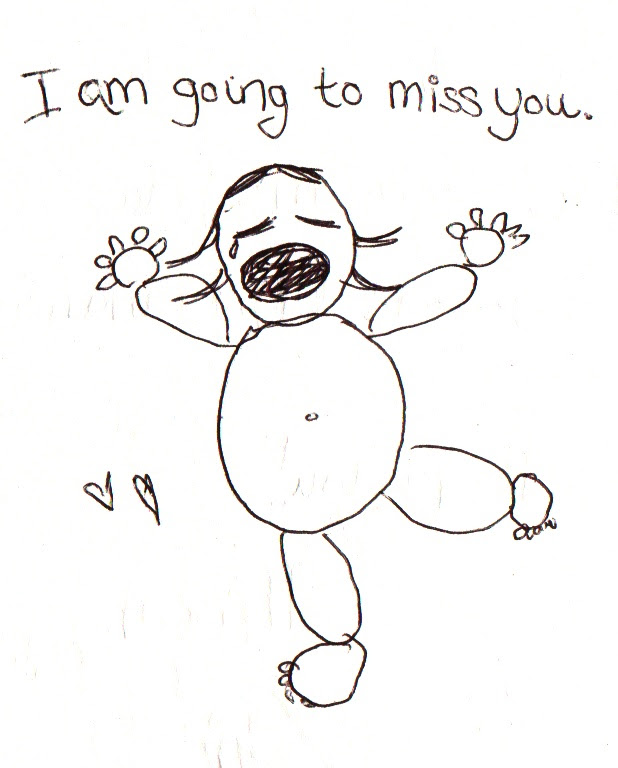 I am going to miss you.